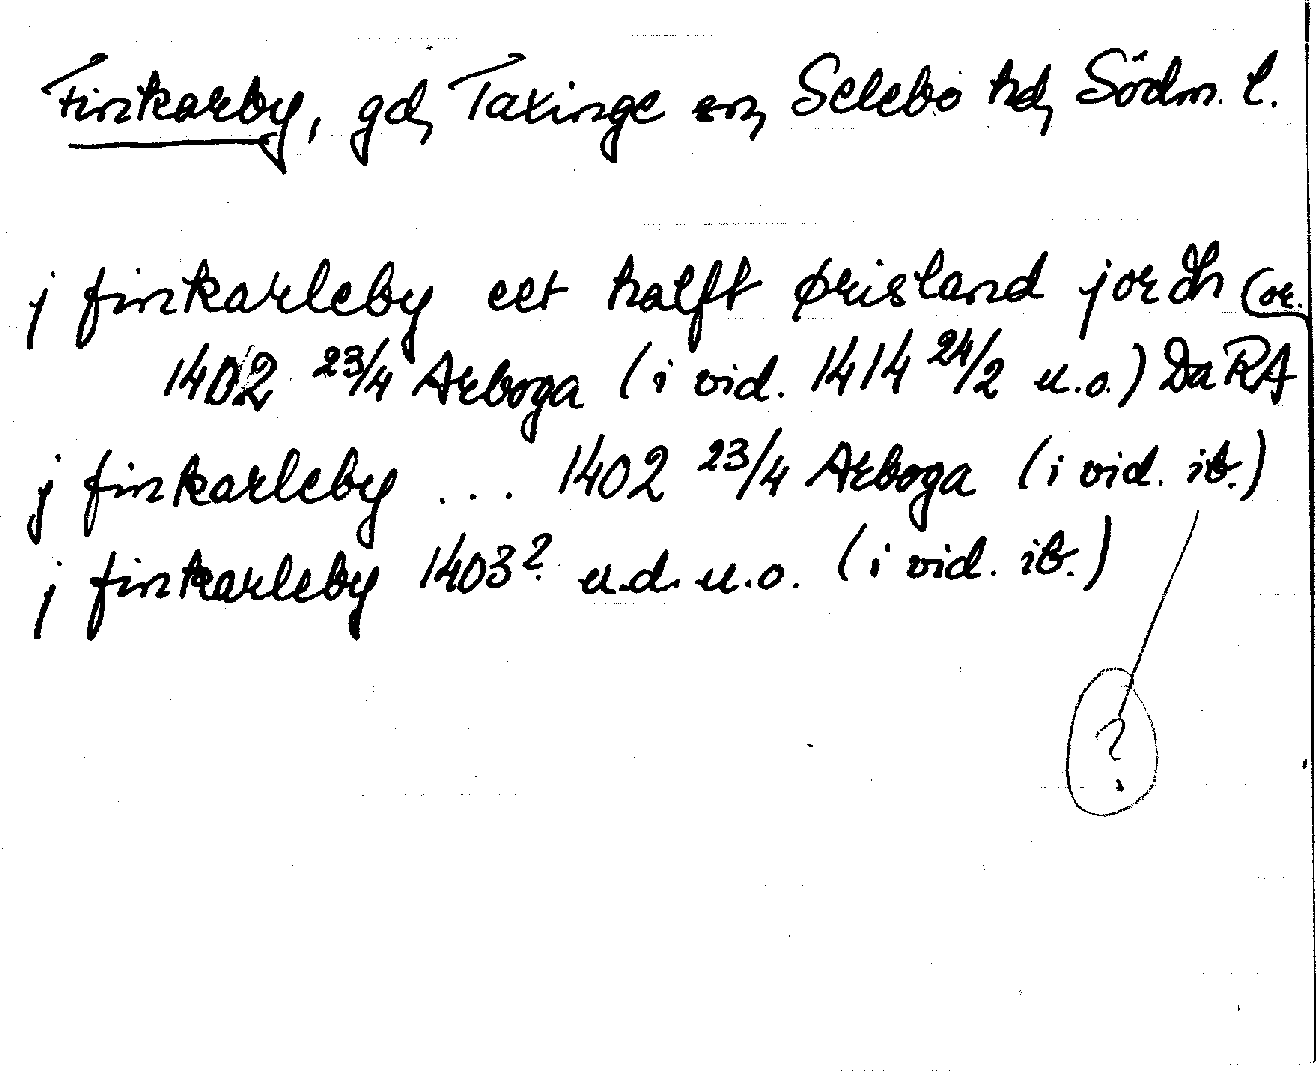 Finkarby, gd, Taxinge sn, Selebo hd, Södm. l.
j finkarleby eet halfft ørisland jordh (or.
1402 23/4 Arboga (i vid. 1414 24/2 u.o.) Da RA
j finkarleby ... 1402 23/4 Arboga (i vid. ib.)
j finkarleby 1403? u.d. u.o. (i vid. ib.)
?